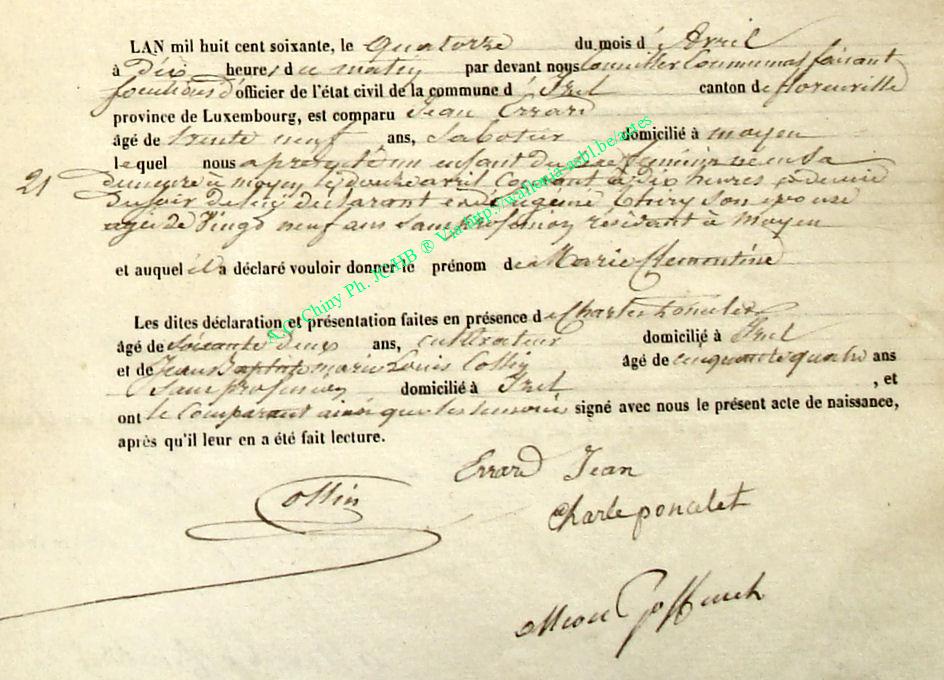 LAN mil huit cent soixante, le quatorze du mois d' Avril
à dix heures du matin par devant nous Conseiller Communal faisant
fonctions d'officier de l'état civil de la commune d' Izel canton de florenville
province de Luxembourg, est comparu Jean Errard
âgé de trente neuf ans, Sabotier domicilié à moyen
lequel nous a présenté un enfant du sexe féminin né en Sa
21 demeure à moyen le douze avril courant à dix heures
du soir de lui déclarant et de Eugénie Thiry Son épouse
agée de Vingt neuf ans Sans profession résidant à Moyen
et auquel il a déclaré vouloir donner le prénom de Marie Clémentine
Les dites déclaration et présentation faites en présence de Charles Poncelet
âgé de soixante deux ans, cultivateur domicilié à Izel
et de Jean Baptiste marie Louis Collin âgé de cinquante quatre ans
Sans profession domicilié à Izel , et
ont le Comparant ainsi que les témoins signé avec nous le présent acte de naissance,
après qu'il leur en a été fait lecture.
Errard Jean
Collin
Charle poncelet
Goffinet
A.C. Chiny Ph. JC HB ® Via http://wallonia-asbl.be/actes